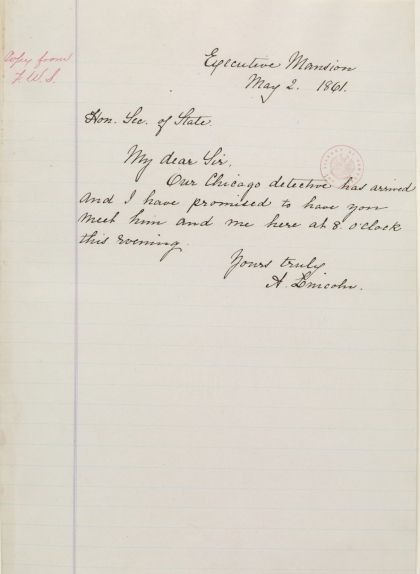 Copy from
F. W. S.
Executive Mansion
May 2. 1861.
Hon. Sec. of State.
My dear Sir,
Our Chicago detective has arrived
and I have promised to have you
meet him and me here at 8. o'clock
this evening.
Yours truly
A. Lincoln.